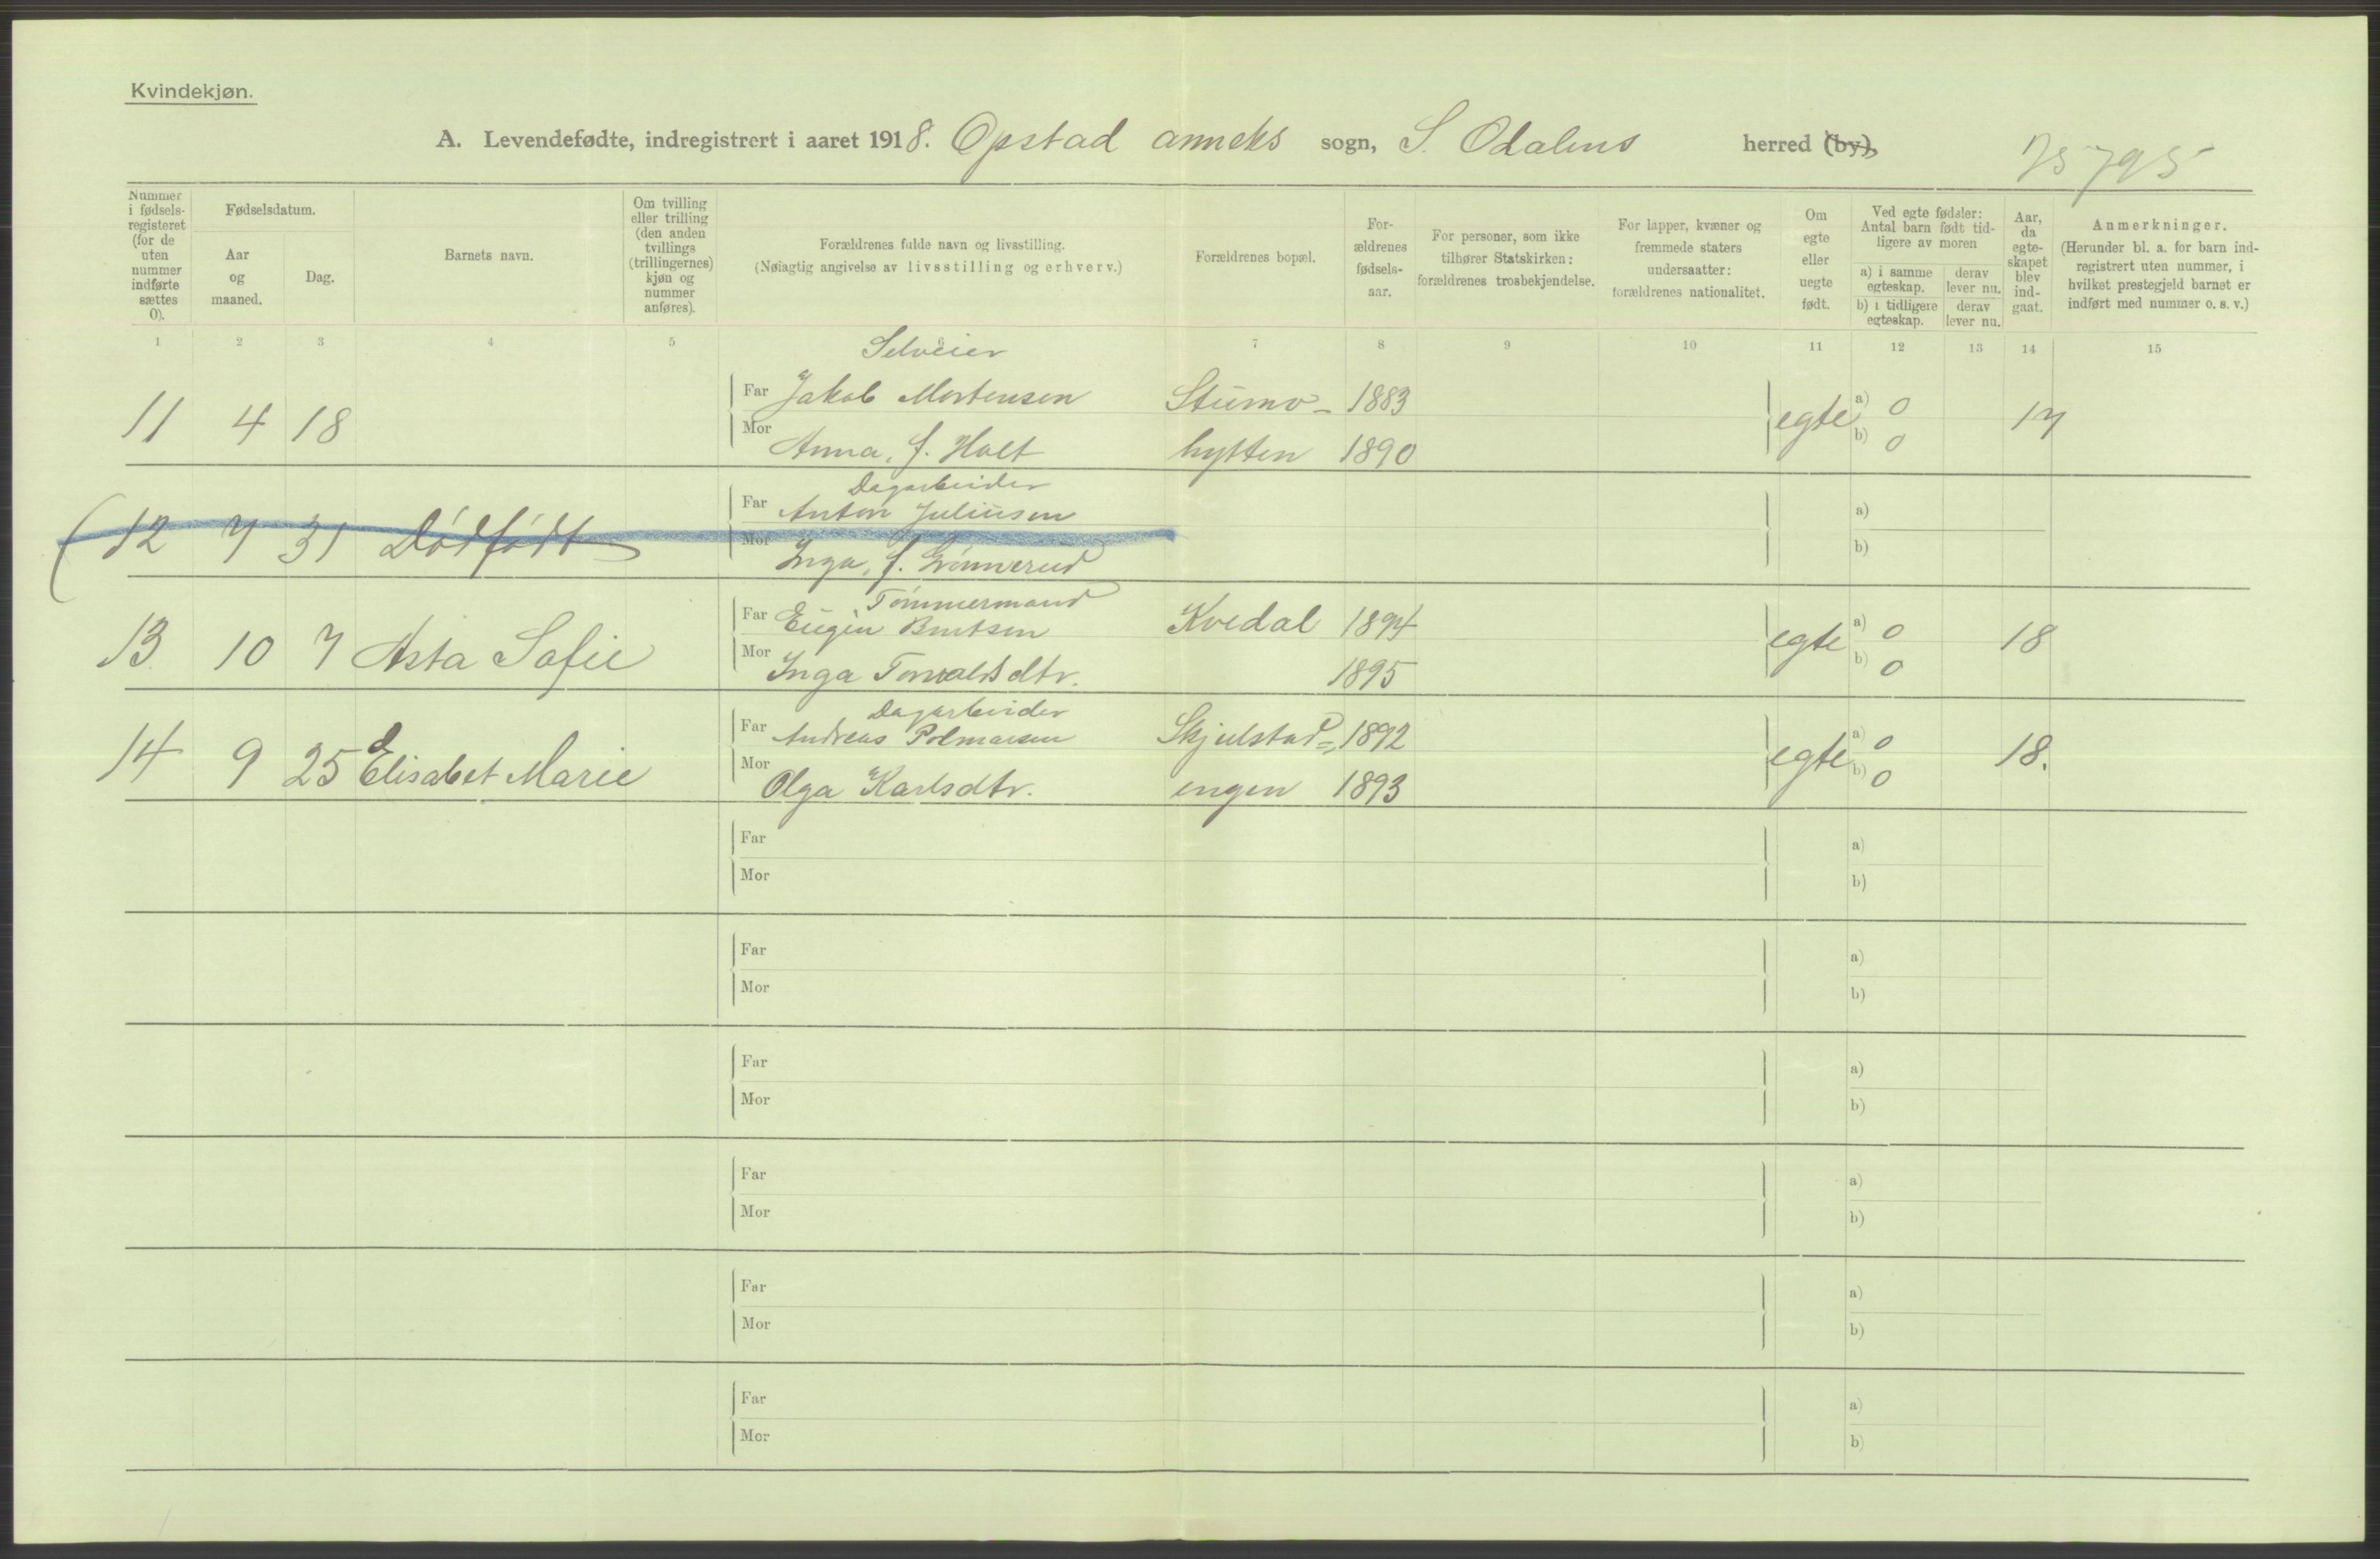 Kvindekjøn.
A. Levendefødte, indregistrert i aaret 1918. Opstad anneks sogn, S. Odalens herred (by),
Nummer i fødsels-registeret (for de uten nummer indførte sættes 0).
Fødselsdatum.
Aar og maaned.
Dag.
Barnets navn.
Om tvilling eller trilling (den anden tvillings (trillingernes) kjøn og nummer anføres).
Forældrenes fulde navn og livsstilling.
(Nøiagtig angivelse av livsstilling og erhverv.)
Forældrenes bopæl.
For-ældrenes fødsels-aar.
For personer, som ikke tilhører Statskirken: forældrenes trosbekjendelse.
For lapper, kvæner og fremmede staters undersaatter: forældrenes nationalitet.
Om egte eller uegte født.
Ved egte fødsler: Antal barn født tid-ligere av moren
a) i samme egteskap. derav lever nu.
b) i tidligere egteskap. derav lever nu.
Aar, da egte-skapet blev ind-gaat.
Anmerkninger.
(Herunder bl. a. for barn ind-registrert uten nummer, i hvilket prestegjeld barnet er indført med nummer o. s. v.)
1 2 3 4 5 6 7 8 9 10 11 12 13 14 15
Selveier
Far Jakob Mortensen Stümo- 1883
11 4 18 egte a) 0 b) 0 17
Mor Anna, f. Holt hytten 1890
Dagarbeider
Far Anton Juliüsen a)
(12 7 31 Dødfødt
Mor Inga, f. b)
Tømmermand
Far Eügén Berntsen Kvedal 1894
13. 10 7 Asta Sofie egte a) 0 b) 0 18
Mor Inga Torvaldsdtr. 1895
Dagarbeider
Far Andreas Skjulstad= 1892
14 9 25 Elisabet Marie egte a) 0 b) 0 18.
Mor Olga Karlsdtr. engen 1893
Far a)
Mor b)
Far a)
Mor b)
Far a)
Mor b)
Far a)
Mor b)
Far a)
Mor b)
Far a)
Mor b)